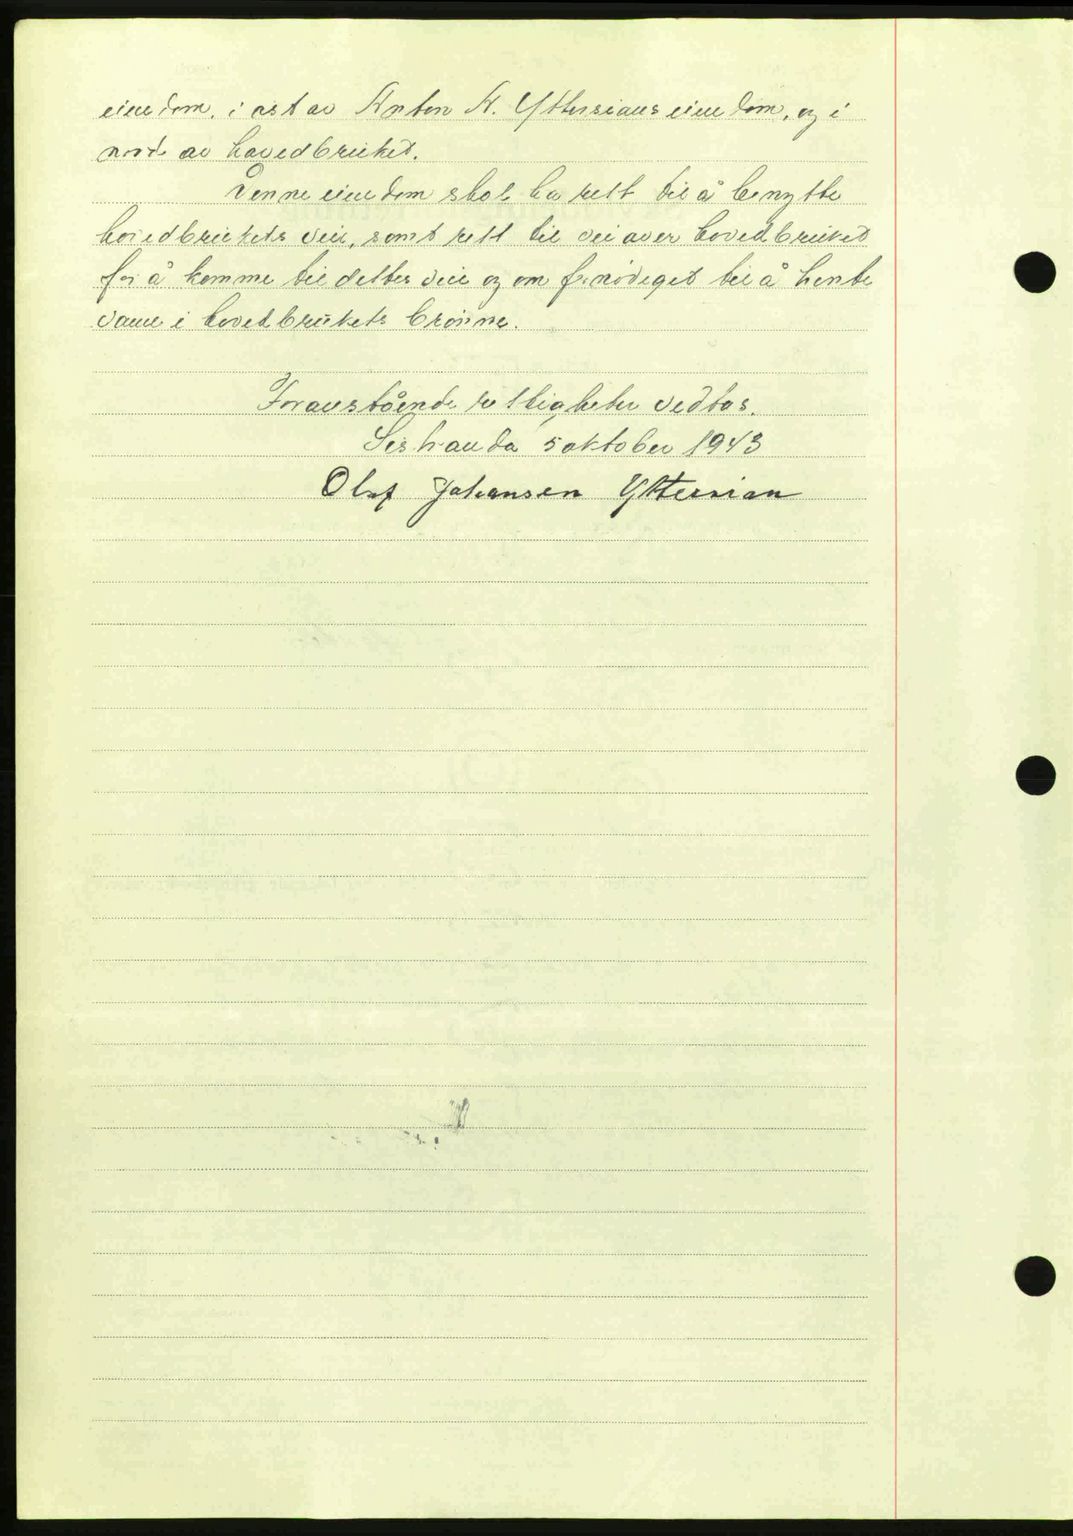 eiendom, i øst av Anton A. Yttersians eiendom, og i
nord av hovedbruket.
Denne eiendom skal ha rett til å benytte
hovedbrukets vei, samt rett til vei over hovedbruket
for å komme til dettes vei og om fornødiget til å hente
vann i hovedbrukets brønn.
Foranstående rettigheter vedtas.
5 oktober 1943
Olaf Johansen Yttersian